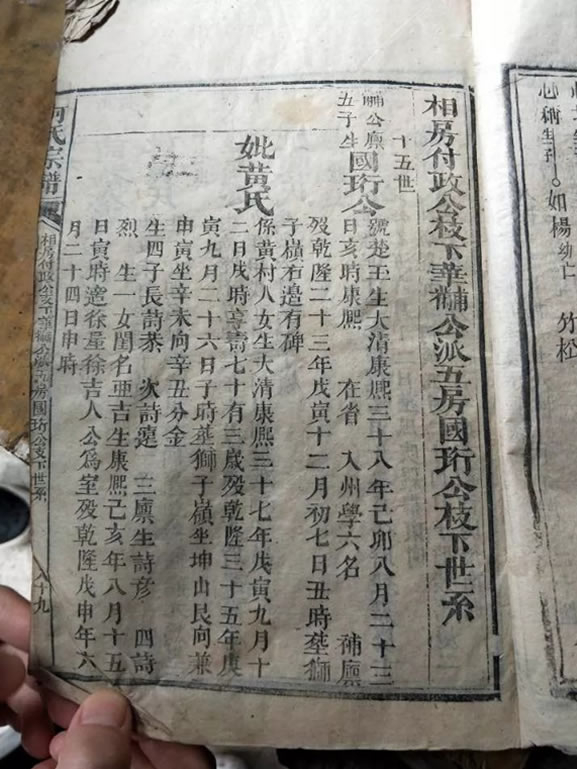 心
如楊
竹松
相房付政公枝下華黼公派五房國珩公枝下世系
十五世
黼公廩
五子生
國珩公
號楚玉生大清康熙三十八年己卯八月二十三
日亥時康熙 在省 入州學六名 補廩
歿乾隆二十三年戊寅十二月初七日丑時塟獅
子嶺右邊有碑
妣黃氏
係黃村人女生大清康熙三十七年戊寅九月十
二日戌時享壽七十有三歲歿乾隆三十五年庚
寅九月二十六日子時塟獅子嶺坐坤山艮向兼
申寅坐辛未向辛丑分金
生四子長詩 次詩 三廩生詩彦 四詩
烈 生一女閨名亜吉生康熙己亥年八月十五
日寅時適徐 徐吉人公為室歿乾隆戊申年六
月二十四日申時
何氏宗譜
相房付政公支下華黼公 房國珩公支下世系
八十九